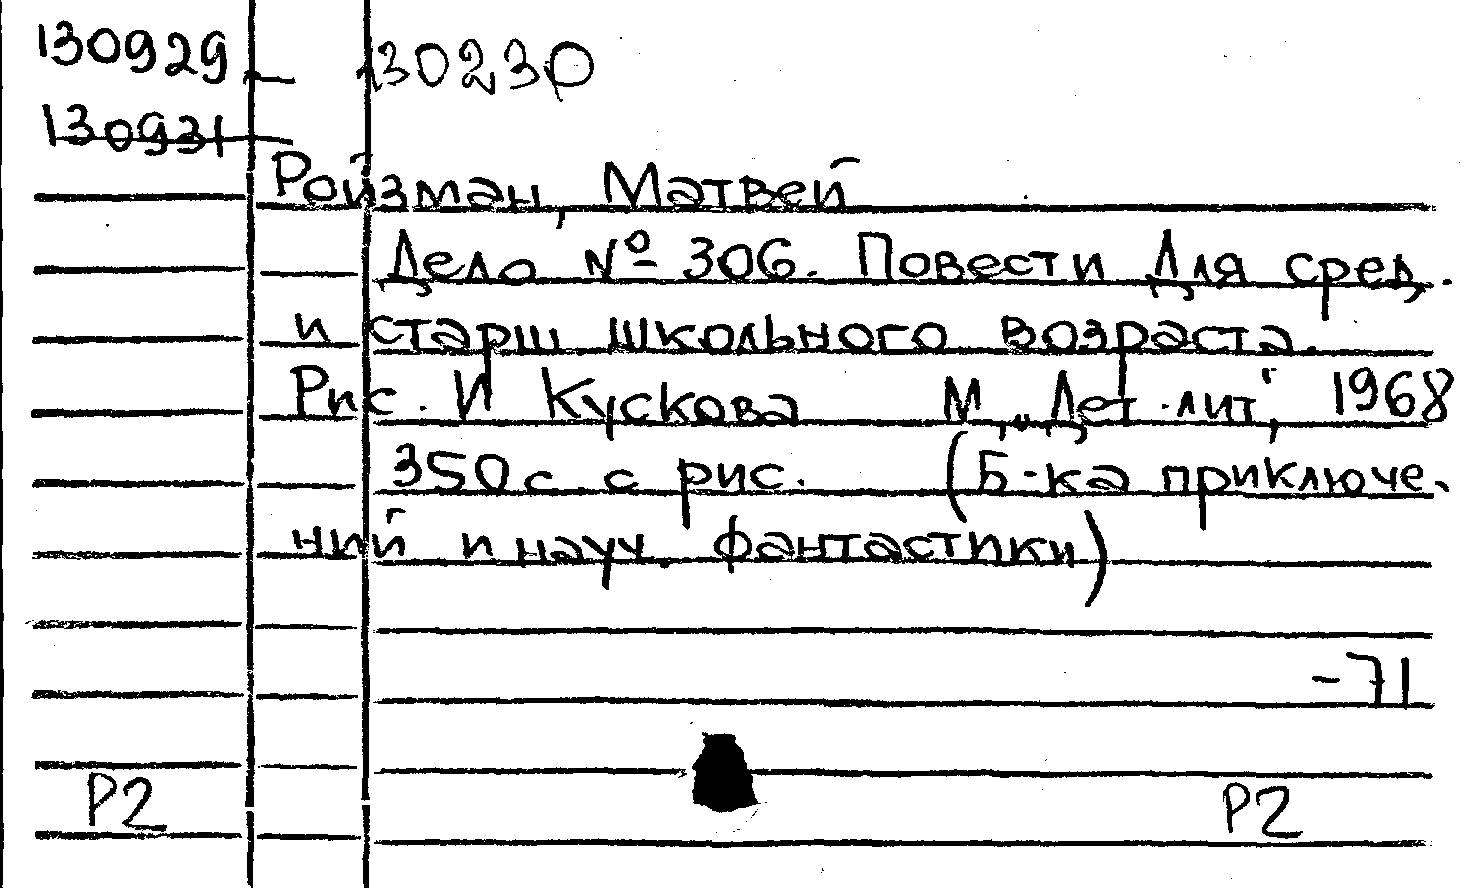 130929 - 130230
130931
Ройзман, Матвей
Дело № 306. Повести Для сред.
и старш школьного возраста.
Рис. И Кускова М, „Дет.лит“, 1968
350 с. с рис. (Б-ка приключе-
ний и науч. фантастики)
-71
Р2 Р2